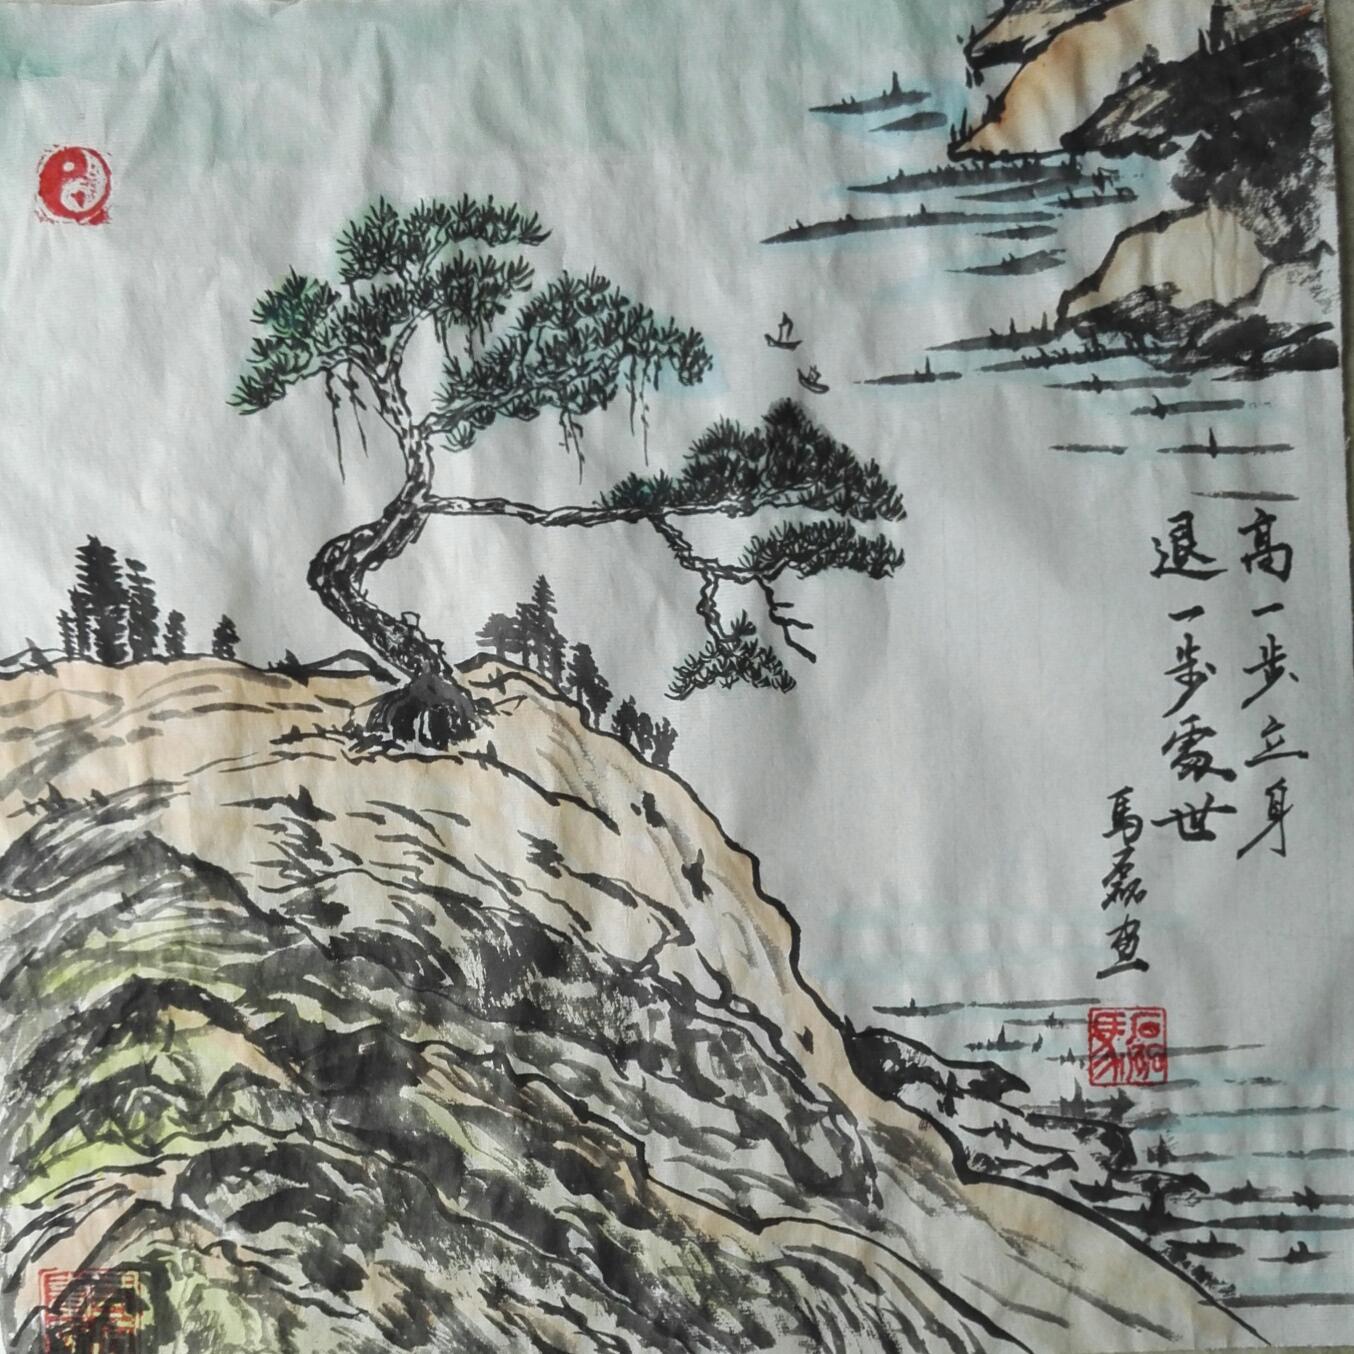 高一步立身
退一步處世
馬磊画